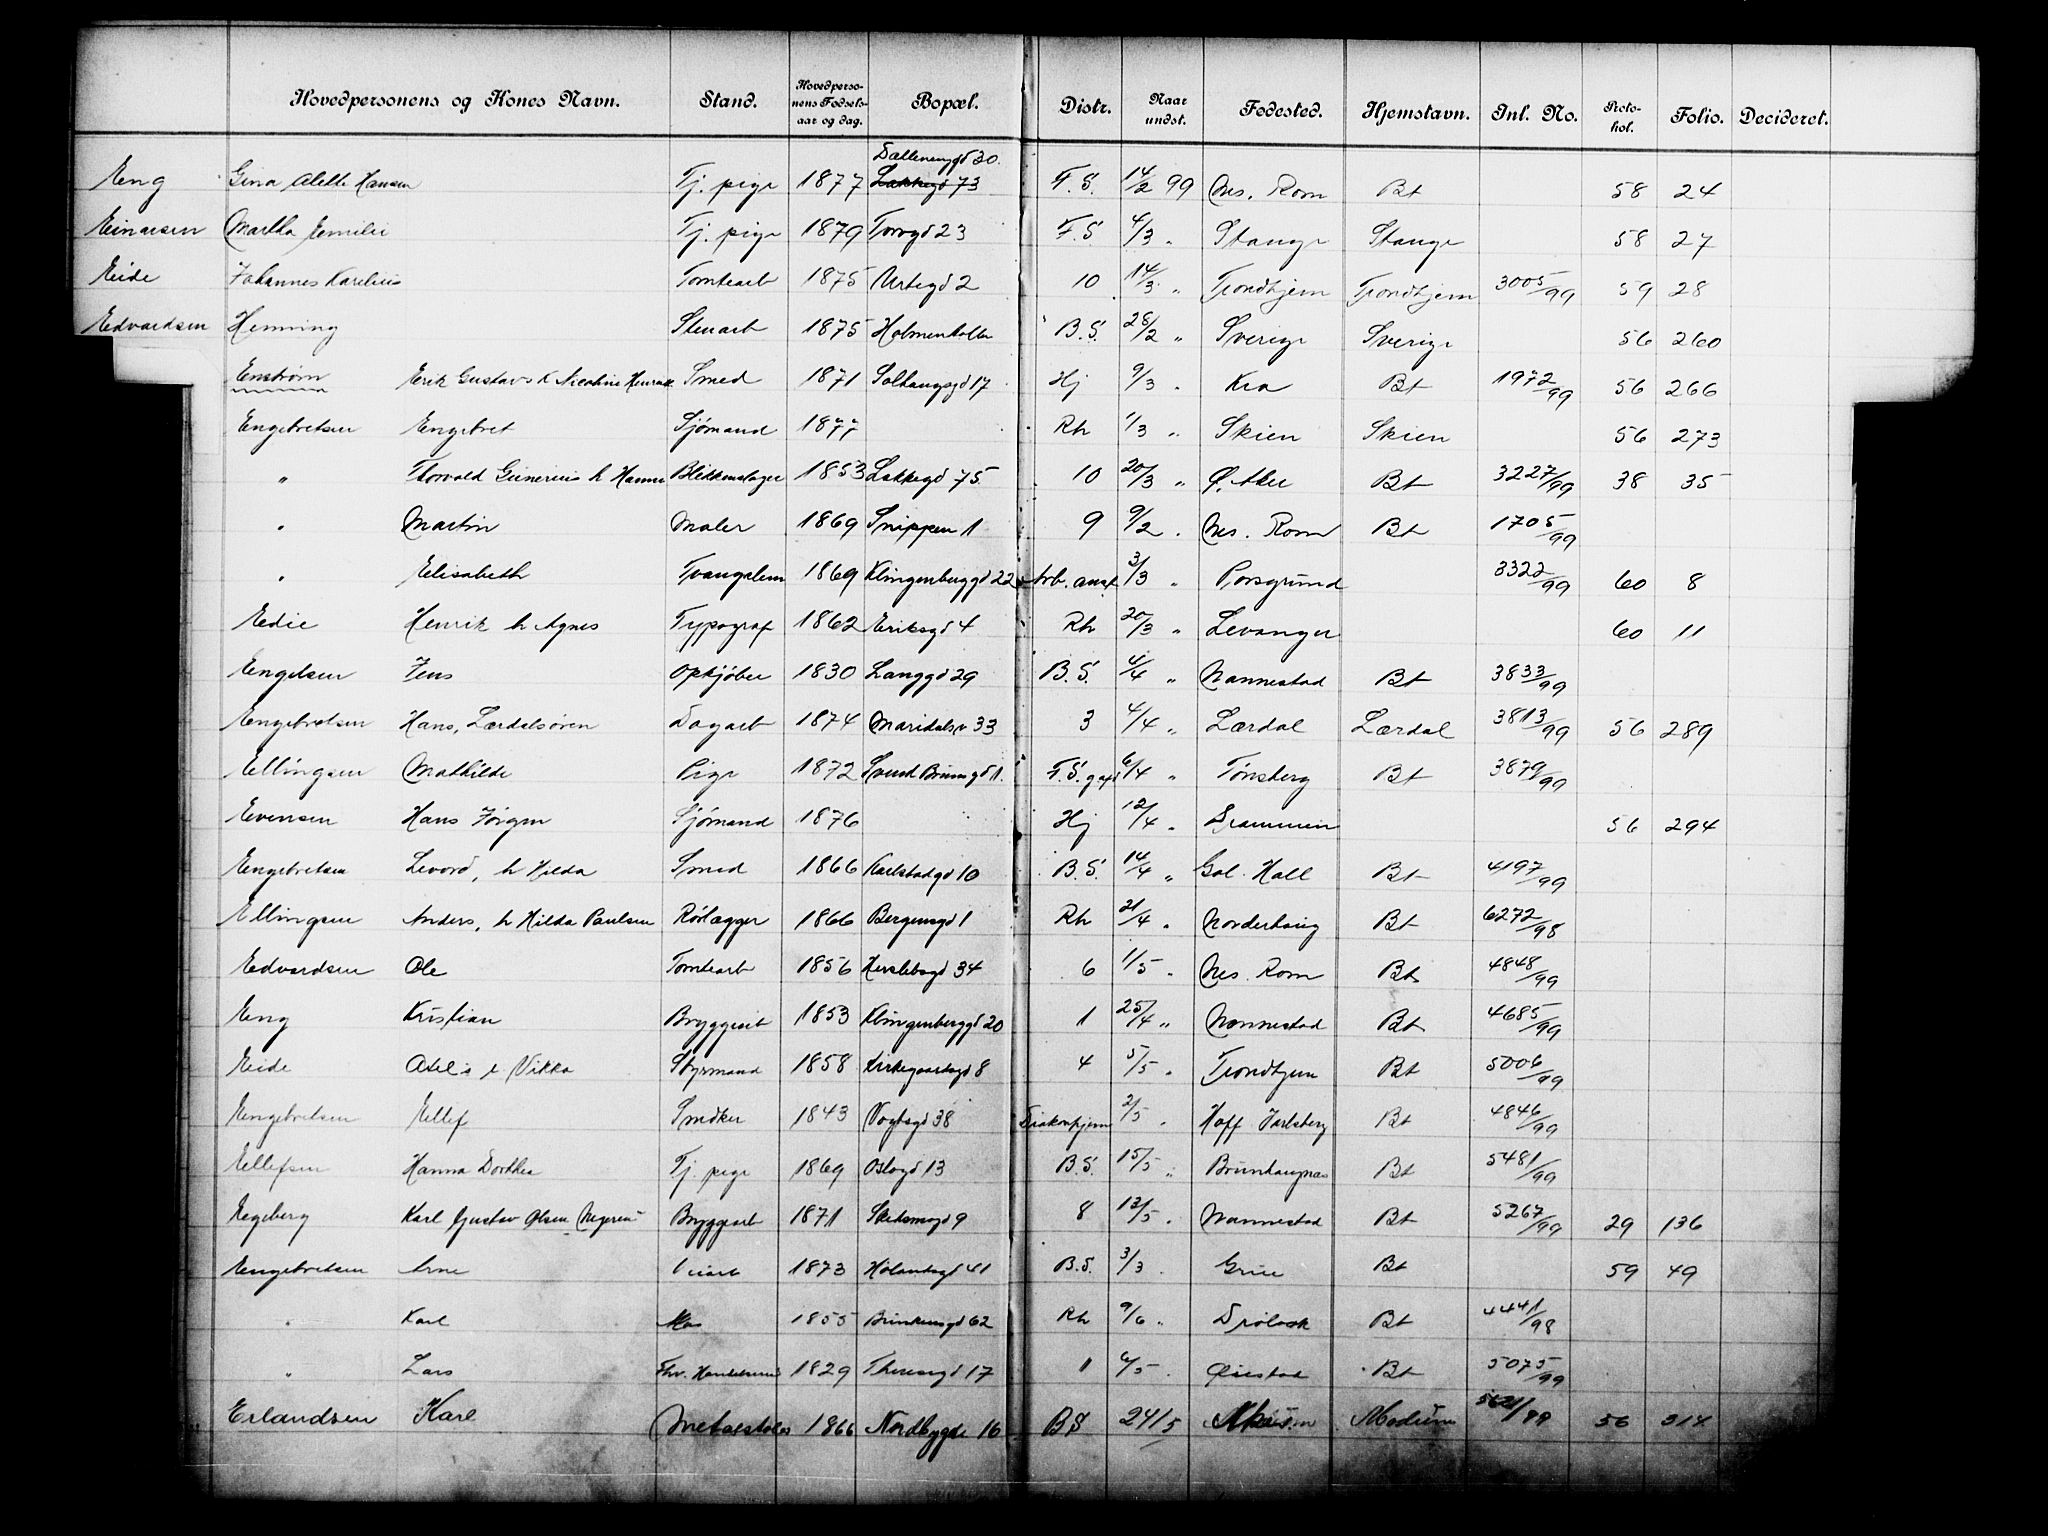 Hovedpersonens og Kones Navn. Stand. Hovedpersonens Fødselsaar og dag. Bopæl. Distr. Naar undst. Fødested. Hjemstavn. Inl. No. Protokol. Folio. Decideret.
Dælleneggd 30.
Eng Gina Alette Hansen Tj. pige 1877 Lakkegd 73 F.S. 14/2 99 Nes. Rom Bt 58 24
Einarsen Martha Emilie Tj. pige 1879 Torvgd 23 F.S 4/3 " Stange Stange 58 27
Eide Johannes Karelius Tomtearb 1875 Urtegd 2 10 14/3 " Trondhjem Trondhjem 3005/99 59 28
Edvardsen Henning Stenarb 1875 Holmenkollen B.S. 28/2 " Sverige Sverige 56 260
Enstrøm Erik Gustavs Nicoline Smed 1871 Solhaugsgd 17 Hj 9/3 " Kra Bt 1972/99 56 266
Engebretsen Engebret Sjømand 1877 Rh 1/3 " Skien Skien 56 273
" Thorvald Gunerius h Hanna Blikkenslager 1853 Lakkegd 75 10 20/3 " Ø. Aker Bt 3227/99 38 35
" Martin Maler 1869 Snippen 1 9 9/2 " Nes. Rom Bt 1705/99
" Elisabeth Tvangslem 1869 Klingenberggd 22 Arb. anst 3/3 " Porsgrund 3322/99 60 8
Edie Henrik h Agnes Typograf 1862 Eriksgd 4 Rh 20/3 " Levanger 60 11
Engelsen Jens Opkjøber 1830 Langgd 29 B.S. 4/4 " Nannestad Bt 3833/99
Engebretsen Hans, Lærdalsøren Dagarb 1874 Maridalsv 33 3 4/4 " Lærdal Lærdal 3813/99 56 289
Ellingsen Mathilde Pige 1872 Svend Bruunsgd 1. F.S. 6/4 " Tønsberg Bt 3879/99
Evensen Hans Jørgen Sjømand 1876 Hj 12/4 " Drammen 56 294
Engebretsen Levord, h Hilda Smed 1866 Karlstadgd 10 B.S. 14/4 " Gol. Hall Bt 4197/99
Ellingsen Anders, h Hilda Paulsen Rørlægger 1866 Bergensgd 1 Rh 21/4 " Norderhaug Bt 6272/98
Edvardsen Ole Tomtearb 1856 Herslebsgd 34 6 1/5 " Nes. Rom Bt 4848/99
Eng Kristian Bryggearb 1853 Klingenberggd 20 1 25/4 " Nannestad Bt 4685/99
Eide Styrmand 1858 Kirkegaardsgd 8 4 5/5 " Trondhjem Bt 5006/99
Engebretsen Ellef Snedker 1843 Vogtsgd 38 Diakonhjem 2/5 " Hoff Jarlsberg Bt 4846/99
Ellefsen Hanna Dorthea Tj. pige 1869 Oslogd 13 B.S. 15/5 " Bt 5481/99
Egeberg Karl Gustav Olsen Bryggearb 1871 Skedsmogd 9 8 12/5 " Nannestad Bt 5267/99 29 136
Engebretsen Arne 1873 Hølandsgd 41 B.S. 3/3 " Grue Bt 59 49
" Karl 1855 Brinkensgd 62 Rh 9/6 " Drøbak Bt 4441/98
" Lars Fhv. 1829 Theresegd 17 1 6/5 " Øiestad Bt 5075/99
Erlandsen Karl 1866 Nordbygde 16 BS 24/5 Modum 56 314